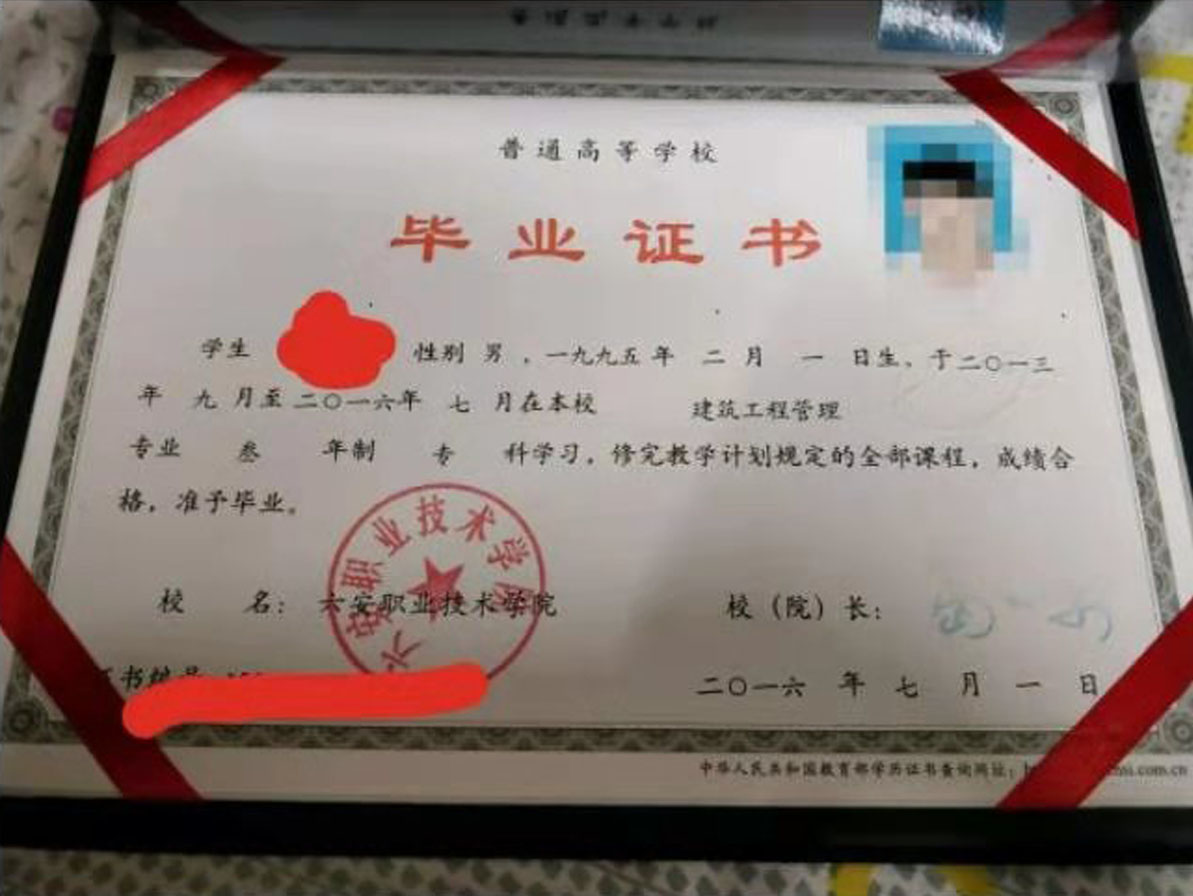 普通高等学校
毕业证书
学生 性别 男，一九九五年 二月 一日生，于二〇一三
年 九月至二〇一六年 七 月在本校 建筑工程管理
专业 叁 年制 专 科学习，修完教学计划规定的全部课程，成绩合
格，准予毕业。
六安职业技术学院
校 名：六安职业技术学院
校（院）长：
书编号
二〇一六 年 七 月 一 日
中华人民共和国教育部学历证书查询网址：
.com.cn